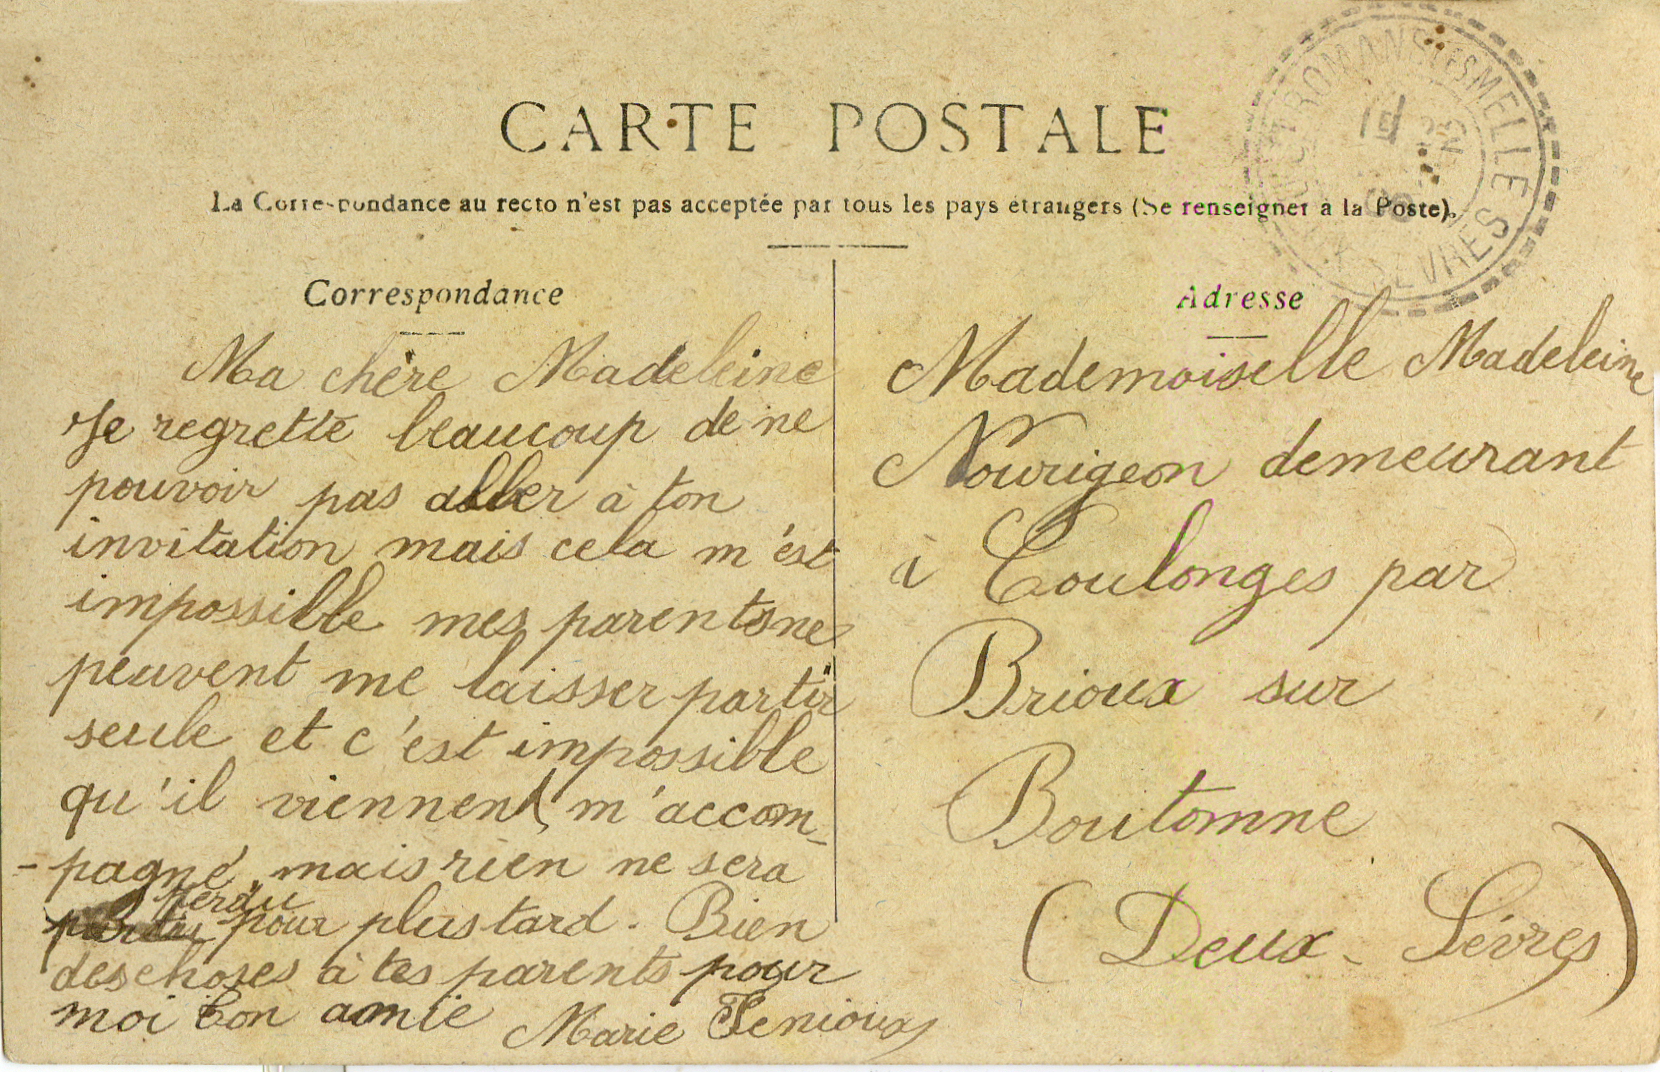 CARTE POSTALE
La Correspondance au recto n'est pas acceptée par tous les pays étrangers (Se renseigner à la Poste).
ROMANS LES MELLE
SEVRES
Correspondance
Ma chère Madeleine
Je regrette beaucoup de ne
pouvoir pas aller à ton
invitation mais cela m'est
impossible mes parents ne
peuvent me laisser partir
seule et c'est impossible
qu'il viennent m'accom-
-pagné, mais rien ne sera
perdu pour plus tard. Bien
des choses à tes parents pour
moi ton amie Marie
Adresse
Mademoiselle Madeleine
Nourigeon demeurant
à Coulonges par
Brioux sur
Boutomne
(Deux-Sévres)